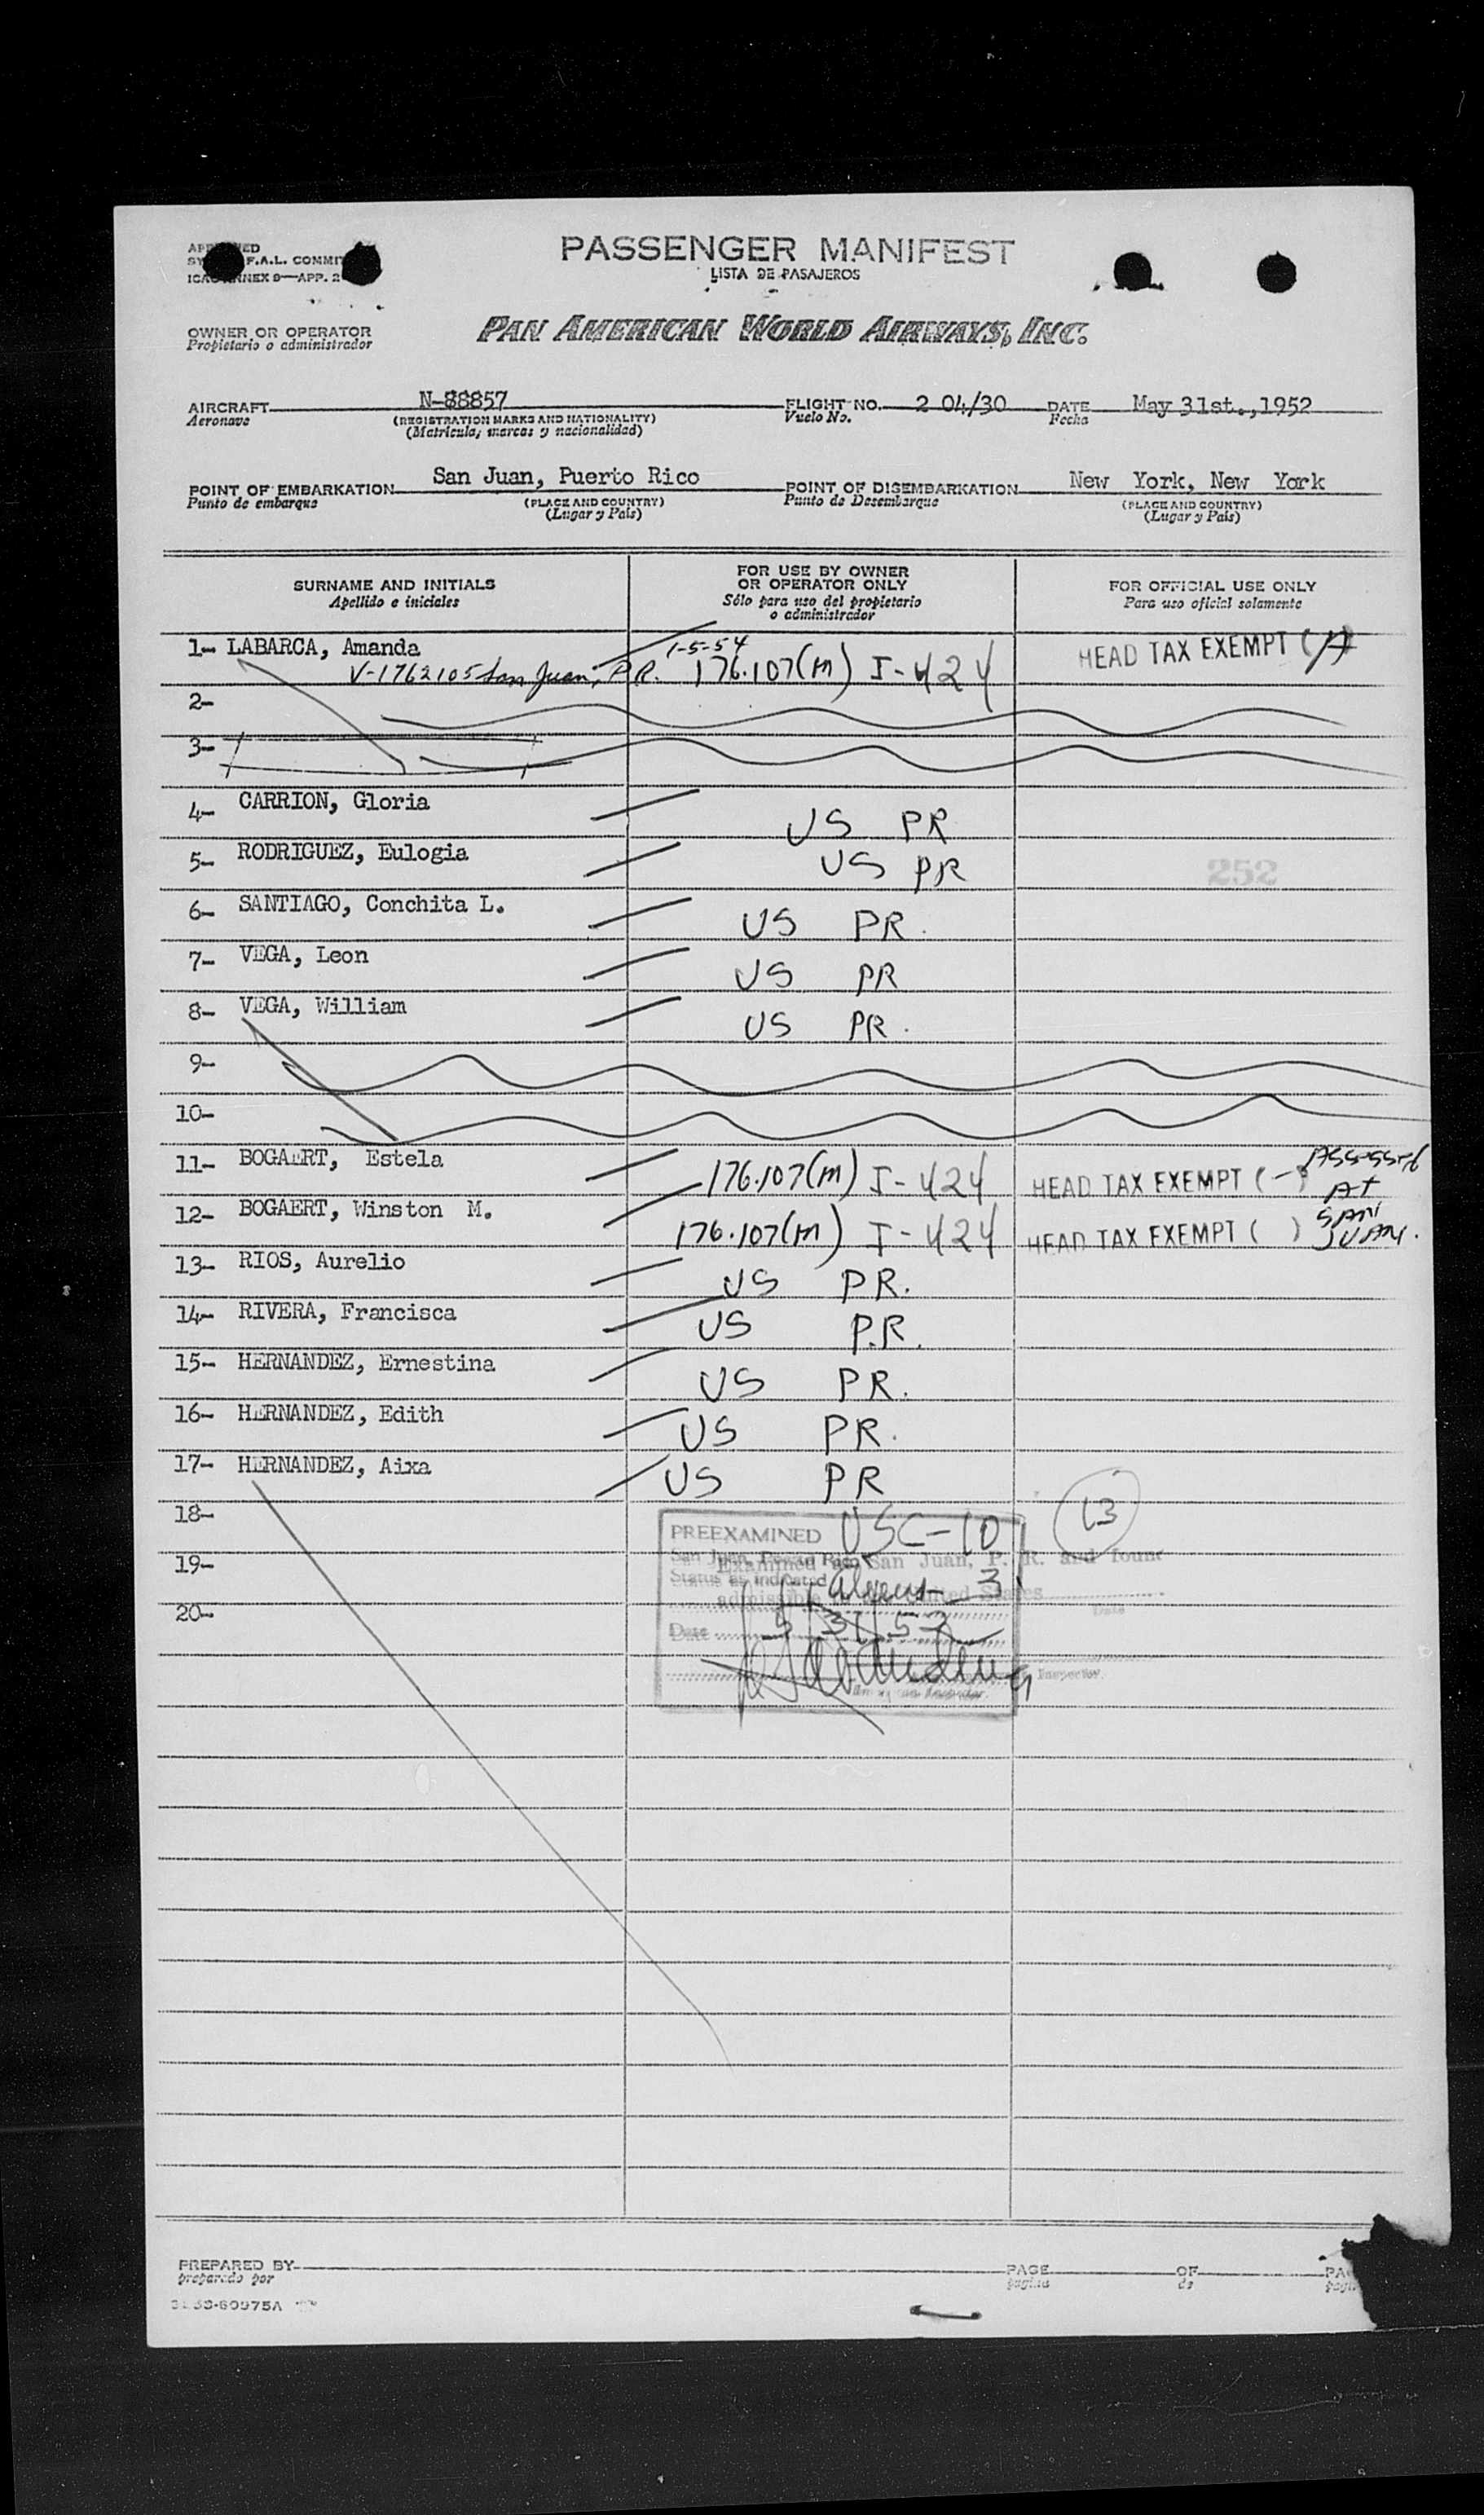 PASSENGER MANIFEST
LISTA DE PASAJEROS
F.A.L. COMMIT
ANNEX 9—APP. 2
OWNER OR OPERATOR
Propietario o administrador
PAN AMERICAN WORLD AIRWAYS, INC.
AIRCRAFT N-88857 FLIGHT NO. 2 04/30 DATE May 31st.,1952
Aeronave (REGISTRATION MARKS AND NATIONALITY) Vuelo No. Fecha
(Matrícula, marcas y nacionalidad)
POINT OF EMBARKATION San Juan, Puerto Rico POINT OF DISEMBARKATION New York, New York
Punto de embarque (PLACE AND COUNTRY) Punto de Desembarque (PLACE AND COUNTRY)
(Lugar y País) (Lugar y País)
SURNAME AND INITIALS FOR USE BY OWNER OR OPERATOR ONLY FOR OFFICIAL USE ONLY
Apellido e iniciales Sólo para uso del propietario o administrador Para uso oficial solamente
1- LABARCA, Amanda 1-5-54 HEAD TAX EXEMPT
V-1762105 San Juan, P.R. 176.107(m) I-424
2-
3-
4- CARRION, Gloria US PR
5- RODRIGUEZ, Eulogia US PR 252
6- SANTIAGO, Conchita L. US PR.
7- VEGA, Leon US PR
8- VEGA, William US PR.
9-
10-
11- BOGAERT, Estela 176.107(m) I-424 HEAD TAX EXEMPT (-) Assessed At
12- BOGAERT, Winston M. 176.107(m) I-424 HEAD TAX EXEMPT ( ) SAN JUAN.
13- RIOS, Aurelio US PR.
14- RIVERA, Francisca US P.R.
15- HERNANDEZ, Ernestina US PR.
16- HERNANDEZ, Edith US PR.
17- HERNANDEZ, Aixa US PR
18- 13
PREEXAMINED USC-10
19- San Juan, Puerto Rico
Examined San Juan, P. R. and found
Status as indicated Aliens-3
admissible United States
20- Date
Date 5/31/52
Inspector.
PREPARED BY PAGE OF
preparado por pagina de